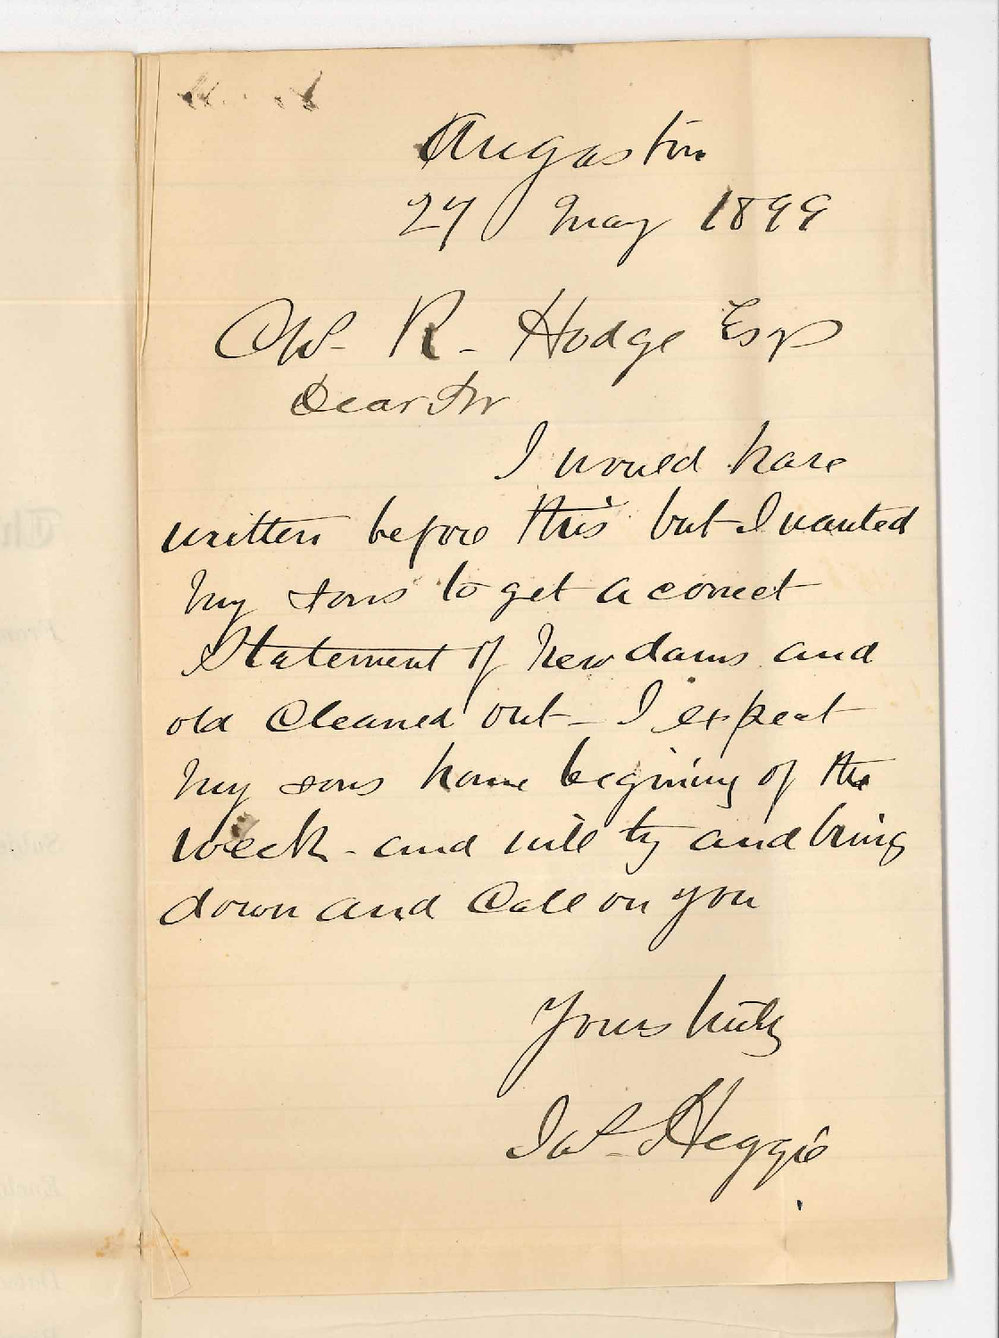 Angaston
27 May 1899
C W. R. Hodge Esq
Dear Sir
I would have
written before this but I wanted
my sons to get a correct
Statement of new dams and
old Cleaned out - I expect
my sons home begining of the
week - and will try and bring
down and Call on you
Yours truly
Jas. Heggie